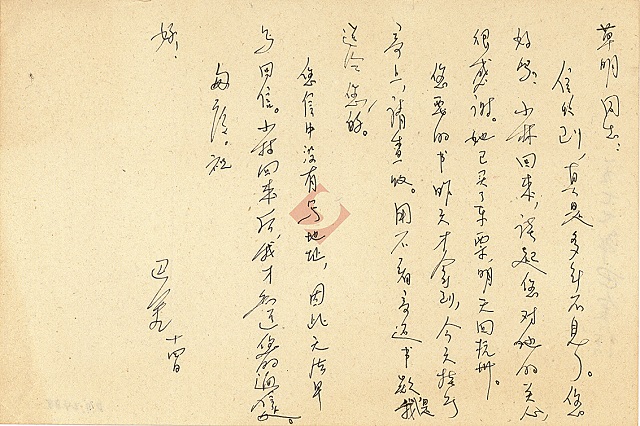 草明同志:
信收到,真是多年不见了。您
好吧?小林回来,谈起您对她的关心,
很感谢。她已买了车票,明天回杭州。
您要的书昨天才拿到,今天挂号
寄上,请查收。用不着寄还书款,是我
送给您的。
您信中没有写地址,因此无法早
写回信。小林回来后,我才知道您的通讯处。
匆复。祝
好!
巴金
十四日